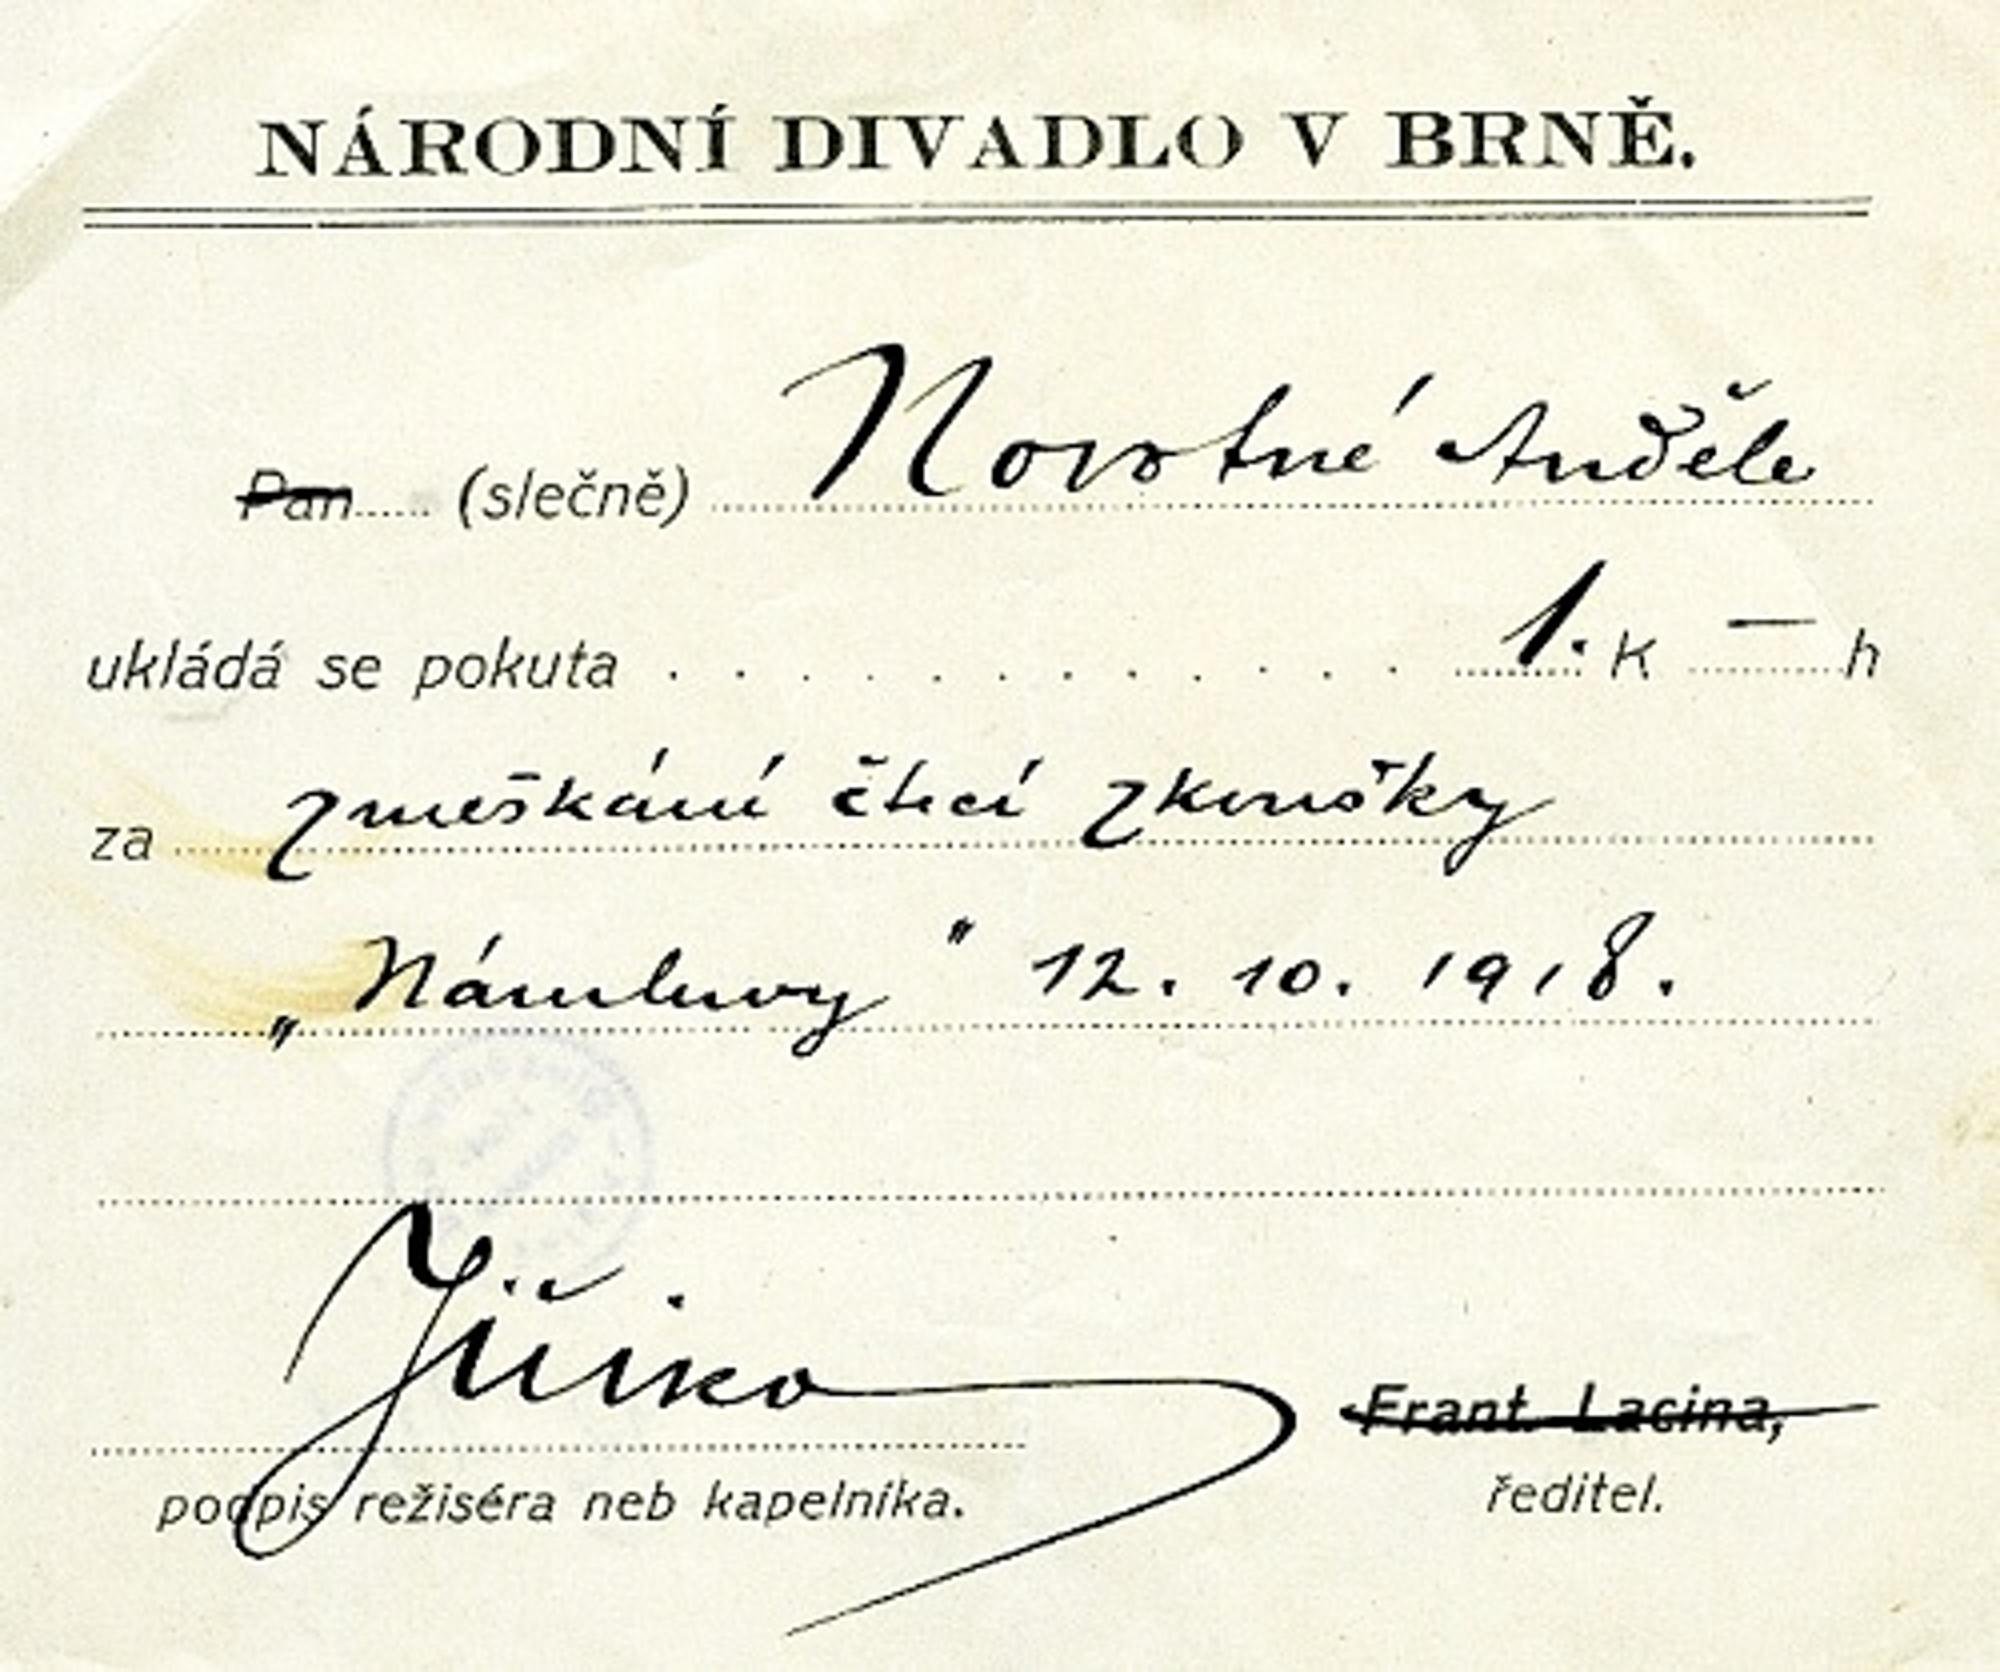 NÁRODNÍ DIVADLO V BRNĚ.
Pan..... (slečně) Novotné Anděle
ukládá se pokuta . . . . . . . . . . . . 1. K — h
za zmeškání čtecí zkoušky
„Námluvy" 12. 10. 1918.
Frant. Lacina,
podpis režiséra neb kapelníka. ředitel.